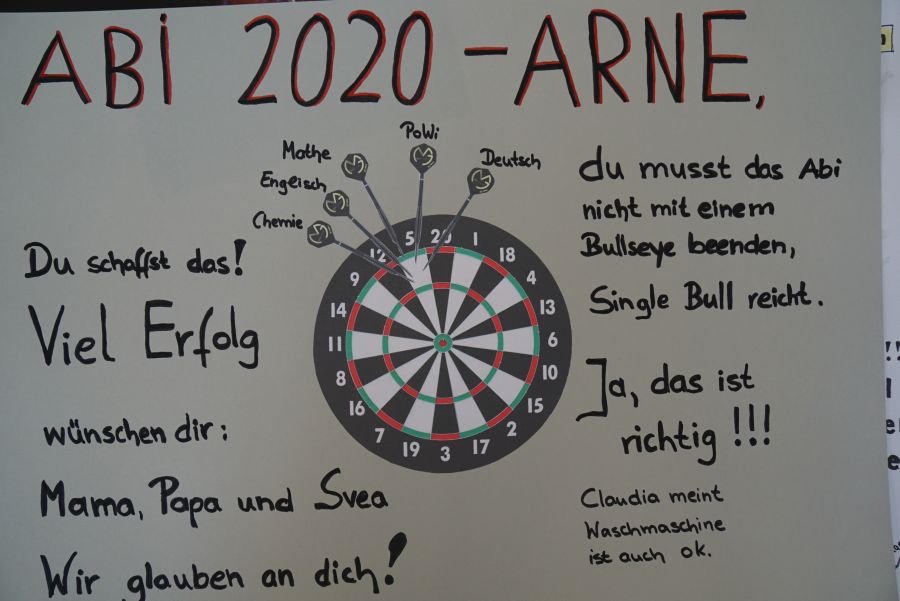 ABI 2020 - ARNE,
PoWi
Mathe
Deutsch
Englisch
Chemie
Du schaffst das!
Viel Erfolg
wünschen dir:
Mama, Papa und Svea
Wir glauben an dich!
du musst das Abi
nicht mit einem
Bullseye beenden,
Single Bull reicht.
Ja, das ist
richtig !!!
Claudia meint
Waschmaschine
ist auch ok.
20
1
18
4
13
6
10
15
2
17
3
19
7
16
8
11
14
9
12
5